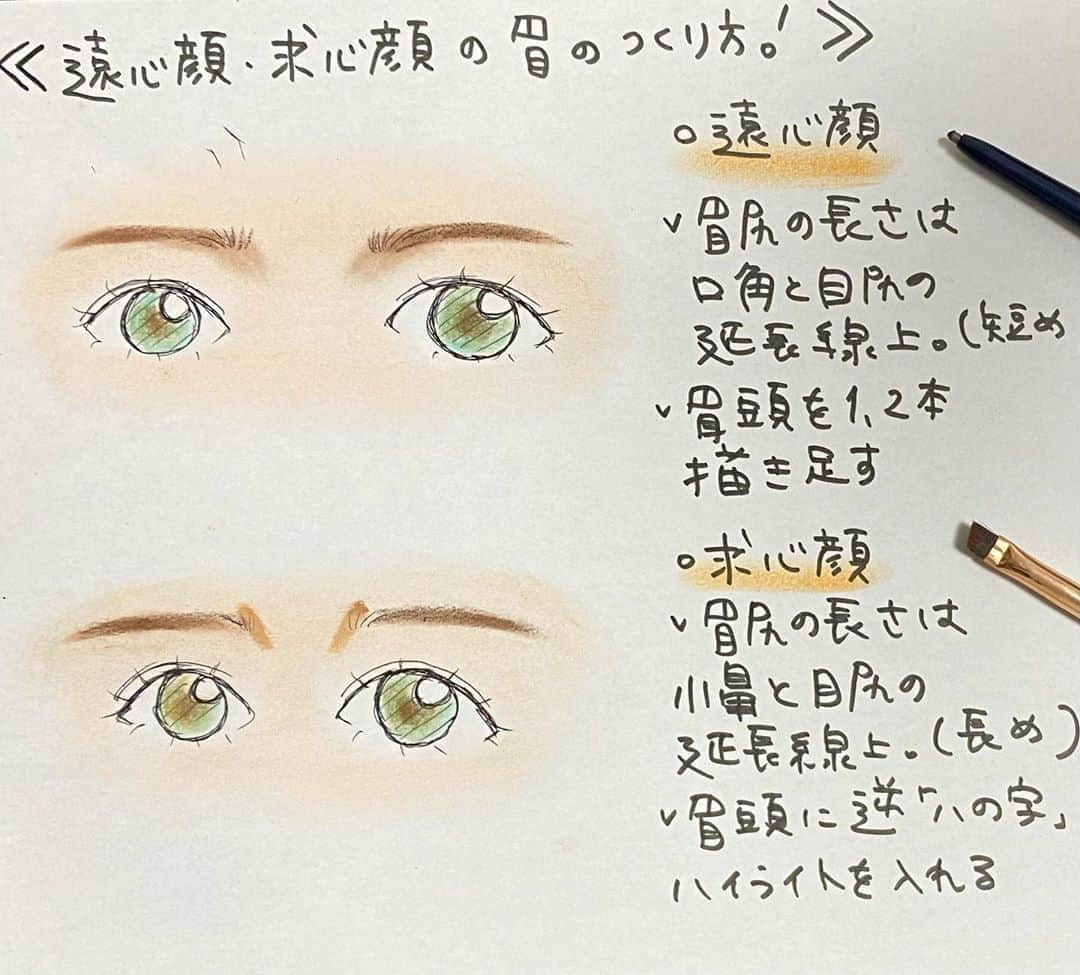 ≪遠心顔・求心顔の眉のつくり方!≫
○遠心顔
✓眉尻の長さは
口角と目尻の
延長線上。(短め
✓眉頭を1、2本
描き足す
○求心顔
✓眉尻の長さは
小鼻と目尻の
延長線上。(長め)
✓眉頭に逆「ハの字」
ハイライトを入れる